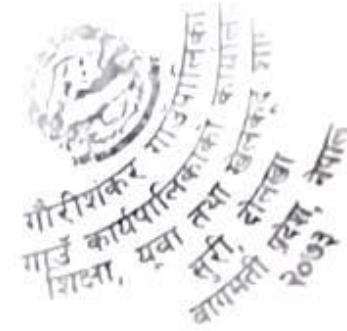 गौरीशंकर गाउँपालिका
गाउँ कार्यपालिकाको कार्यालय
शिक्षा, युवा तथा खेलकुद शाखा
सुरी, दोलखा
बागमती प्रदेश, नेपाल
२०७३